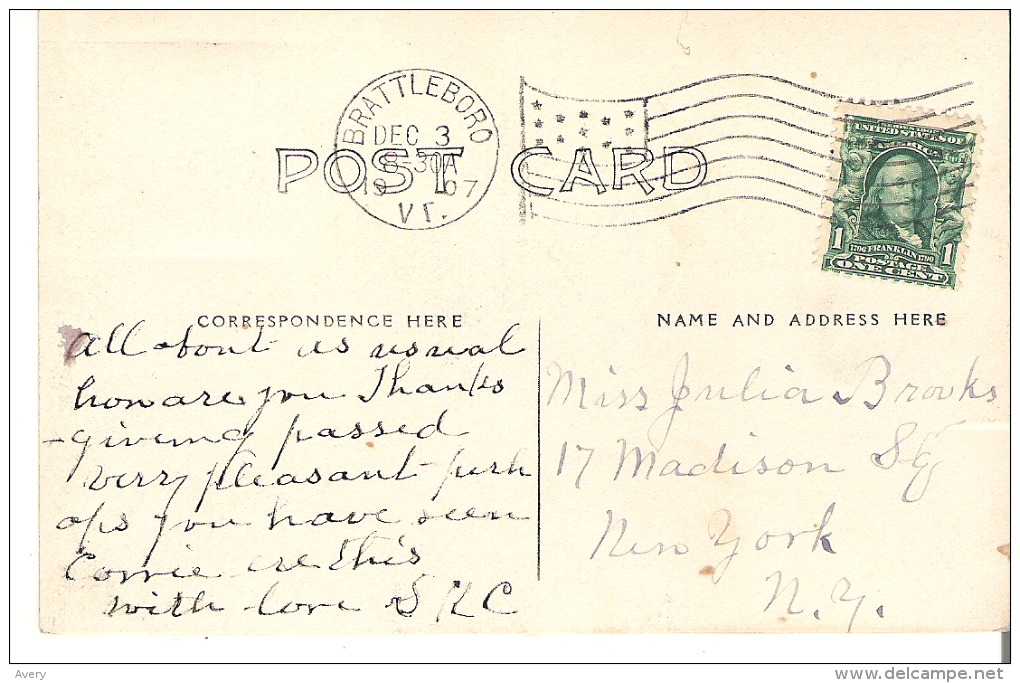 BRATTLEBORO
DEC 3
8-30A
19 07
VT.
POST CARD
UNITED STATES OF
AMERICA
1706 FRANKLIN 1790
1 POSTAGE 1
ONE CENT
CORRESPONDENCE HERE
All about as usual
how are you Thanks
-giving passed
very pleasant perh
aps you have seen
Corrie ere this
with love S K C
NAME AND ADDRESS HERE
Miss Julia Brooks
17 Madison Sq
New York
N. Y.
Avery
www.delcampe.net